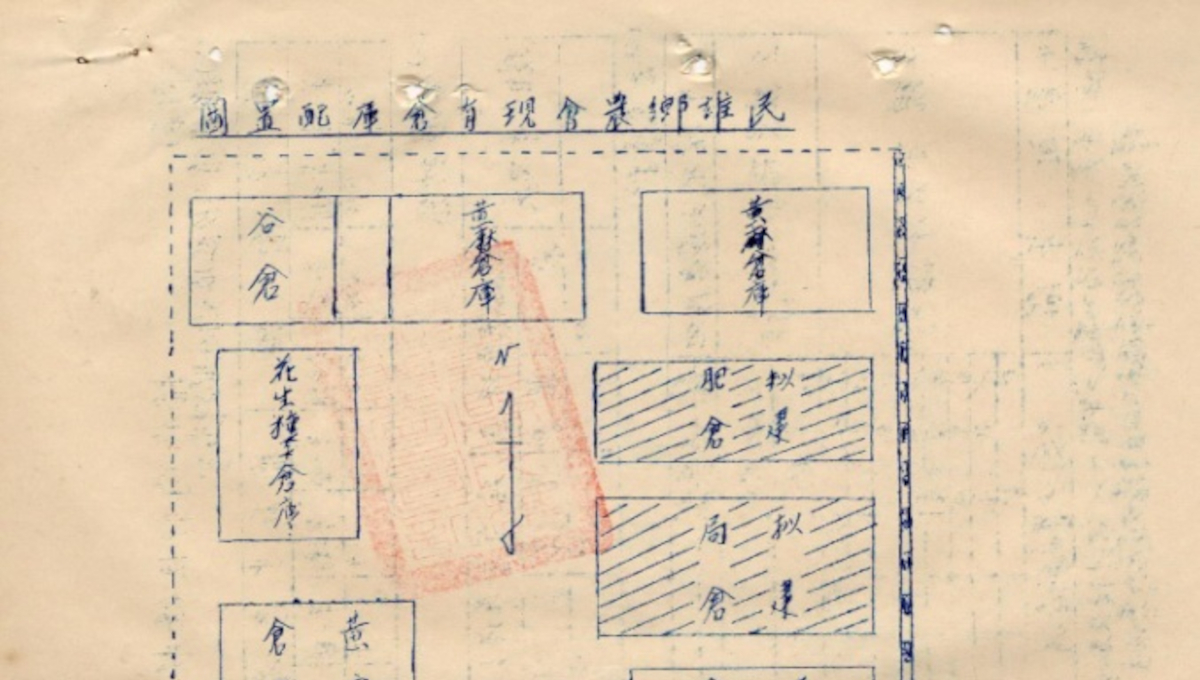 民雄鄉農會現有倉庫配置圖
谷倉
黃麻倉庫
黃麻倉庫
N
花生種子倉庫
拟建
肥倉
拟建
局倉
黃
倉